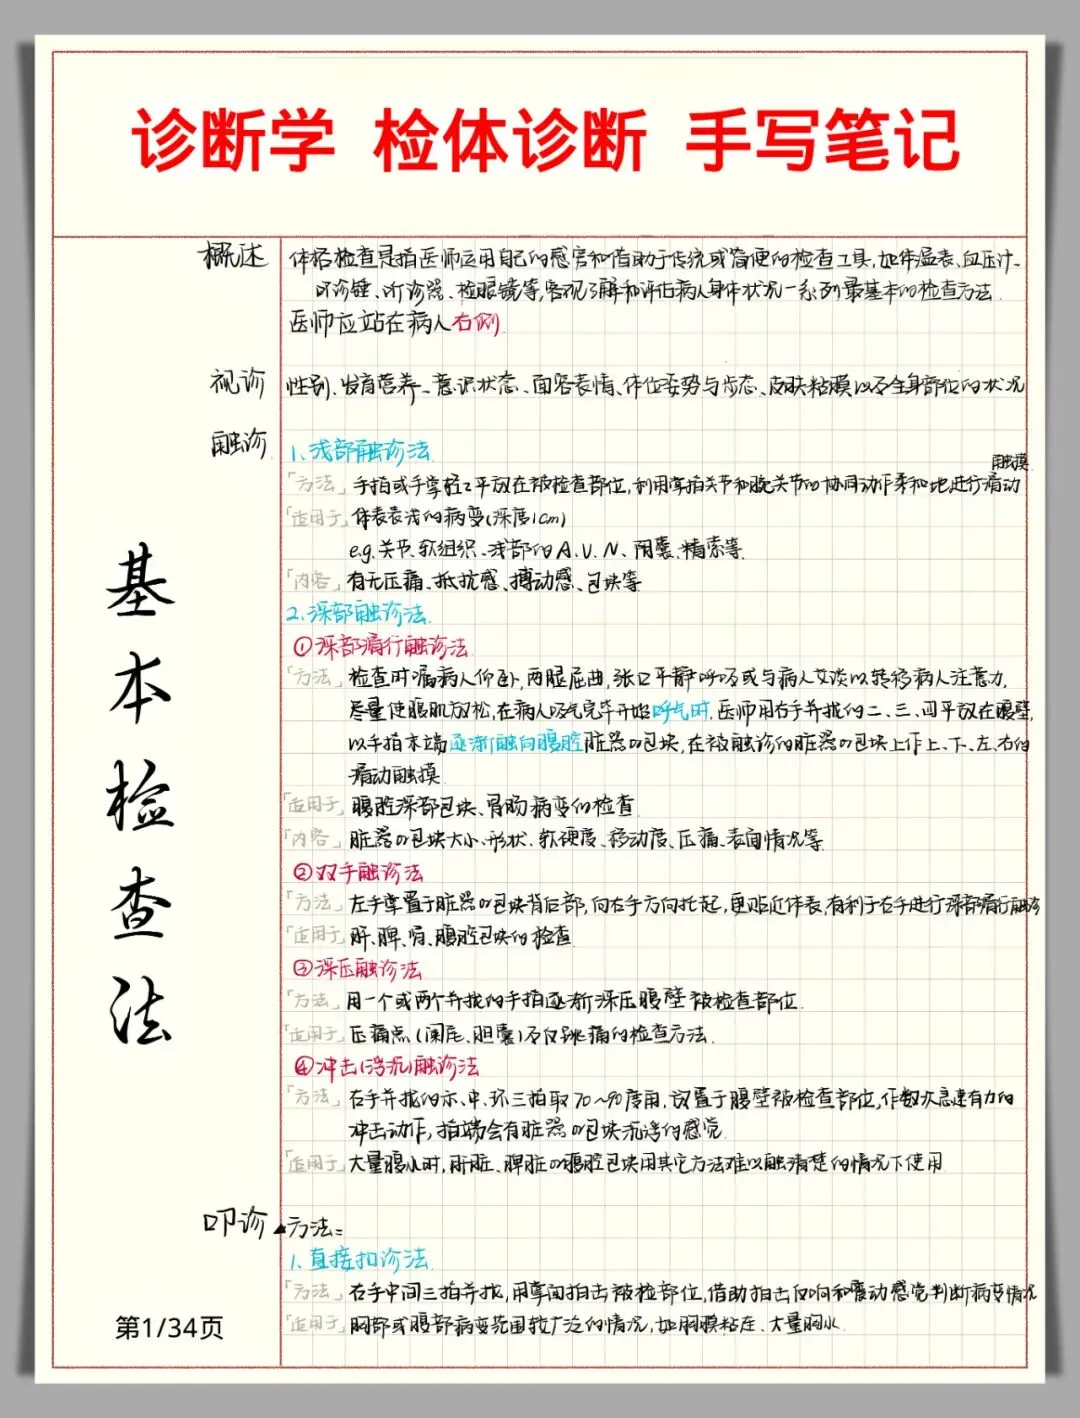 诊断学 检体诊断 手写笔记
概述
体格检查是指医师运用自己的感官和借助于传统或简便的检查工具,如体温表、血压计、
叩诊锤、听诊器、检眼镜等,客观了解和评估病人身体状况一系列最基本的检查方法.
医师应站在病人右侧.
视诊
性别、发育营养、意识状态、面容表情、体位姿势与步态、皮肤粘膜以及全身部位的状况
触诊
1.浅部触诊法
触摸
「方法」手指或手掌轻平放在被检查部位,利用掌指关节和腕关节的协同动作柔和地进行滑动
「适用于」体表表浅的病变(深度1cm)
e.g.关节、软组织、浅部的A、V、N、阴囊、精索等.
「内容」有无压痛、抵抗感、搏动感、包块等
2.深部触诊法.
①深部滑行触诊法
「方法」检查时嘱病人仰卧,两腿屈曲,张口平静呼吸或与病人交谈以转移病人注意力,
尽量使腹肌放松,在病人吸气完毕开始呼气时,医师用右手并拢的二、三、四平放在腹壁,
以手指末端逐渐触向腹腔脏器或包块,在被触诊的脏器或包块上作上、下、左、右的
滑动触摸.
「适用于」腹腔深部包块、胃肠病变的检查.
「内容」脏器或包块大小、形状、软硬度、移动度、压痛、表面情况等
②双手触诊法
「方法」左手掌置于脏器或包块背后部,向右手方向托起,更贴近体表,有利于右手进行深部滑行触诊
「适用于」肝、脾、肾、腹腔包块的检查.
③深压触诊法
「方法」用一个或两个并拢的手指逐渐深压腹壁被检查部位.
「适用于」压痛点(阑尾、胆囊)及反跳痛的检查方法.
④冲击(浮沉)触诊法
「方法」右手并拢的示、中、环三指取70~90度角,放置于腹壁被检查部位,作数次急速有力的
冲击动作,指端会有脏器或包块沉浮的感觉.
「适用于」大量腹水时,肝脏、脾脏或腹腔包块用其它方法难以触清楚的情况下使用
叩诊
▲方法:
1.直接扣诊法
「方法」右手中间三指并拢,用掌面拍击被检部位,借助拍击反响和震动感觉判断病变情况
「适用于」胸部或腹部病变范围较广泛的情况,如胸膜粘连、大量胸水.
基
本
检
查
法
第1/34页